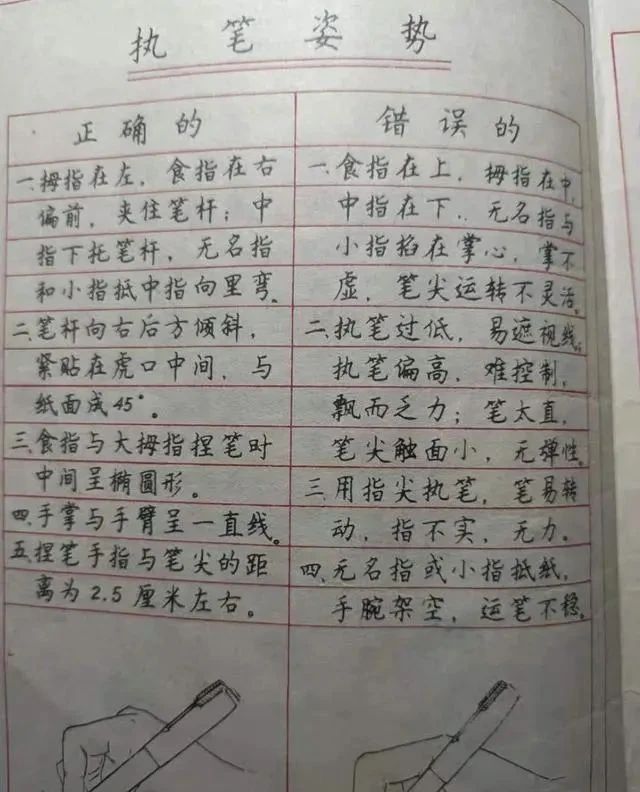 执笔姿势
正确的
一、拇指在左，食指在右
偏前，夹住笔杆；中
指下托笔杆，无名指
和小指抵中指向里弯。
二、笔杆向右后方倾斜，
紧贴在虎口中间，与
纸面成45°。
三、食指与大拇指捏笔时
中间呈椭圆形。
四、手掌与手臂呈一直线。
五、捏笔手指与笔尖的距
离为2.5厘米左右。
错误的
一、食指在上，拇指在中，
中指在下，无名指与
小指掐在掌心，掌不
虚，笔尖运转不灵活。
二、执笔过低，易遮视线。
执笔偏高，难控制，
飘而乏力；笔太直，
笔尖触面小，无弹性。
三、用指尖执笔，笔易转
动，指不实，无力。
四、无名指或小指抵纸，
手腕架空，运笔不稳。